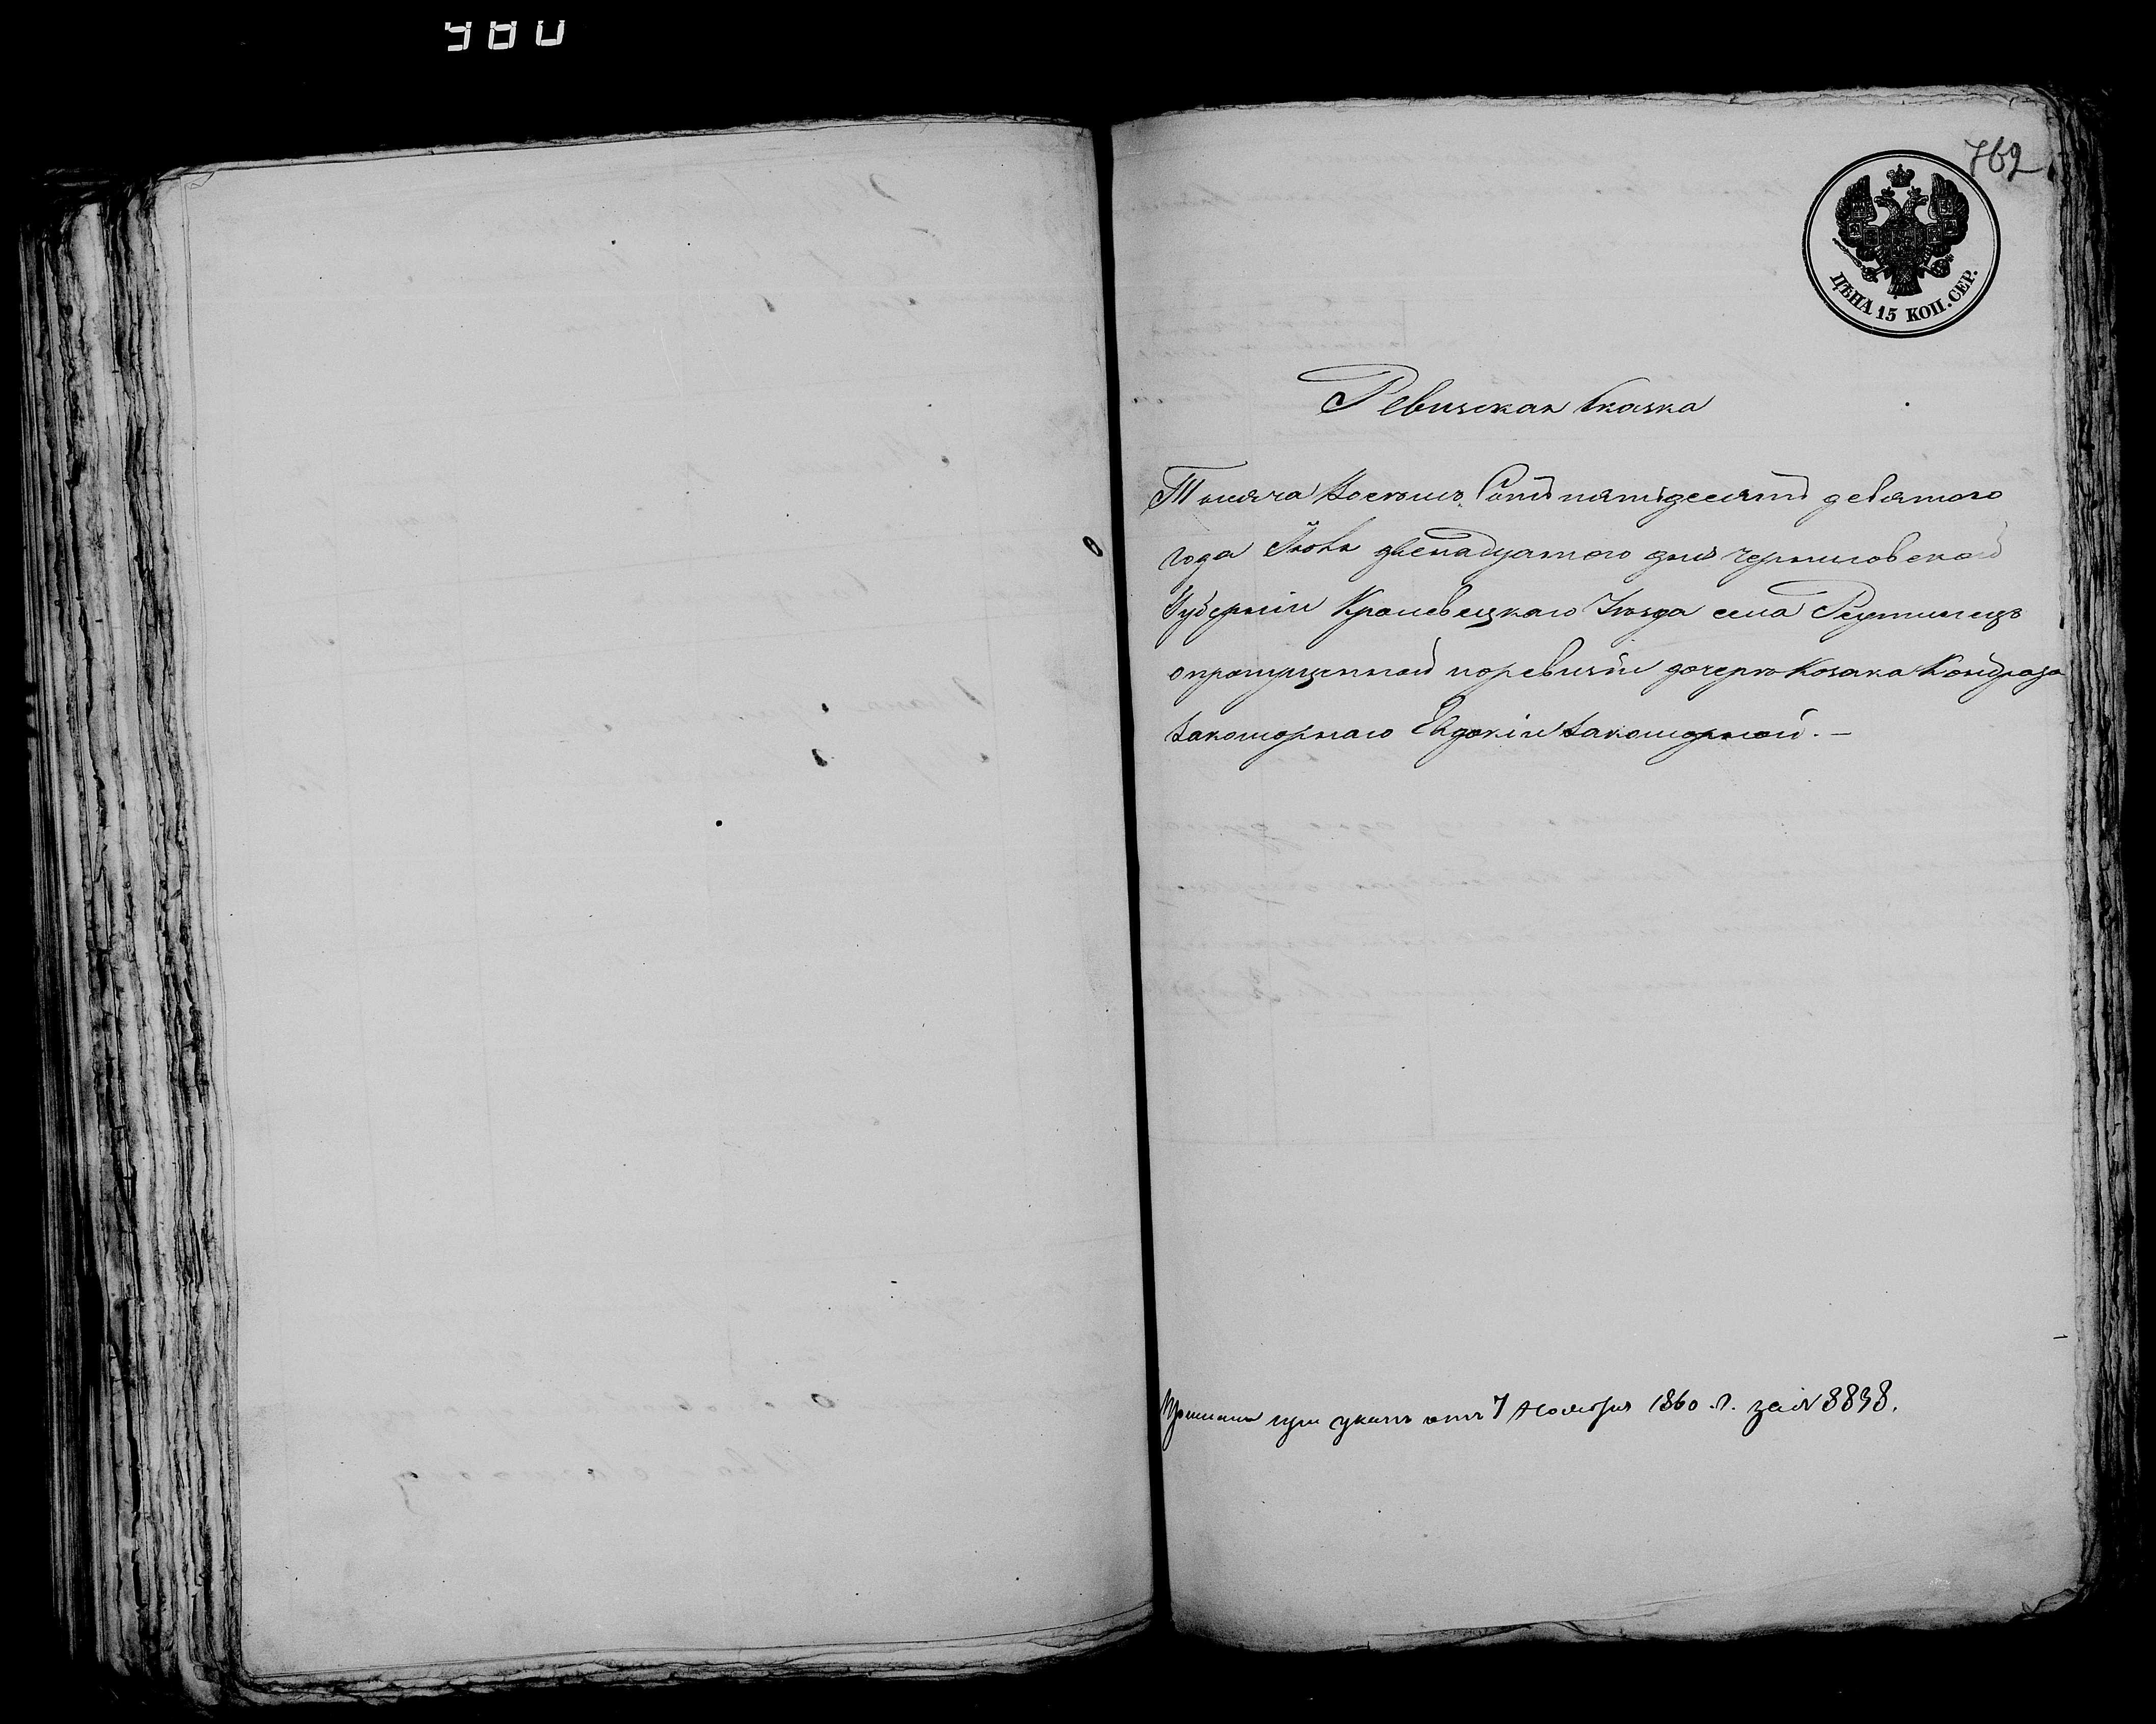 980
762
ЦѢНА 15 КОП. СЕР.
Ревизская сказка
Тысяча восемь Сотъ пятьдесятъ девятого
года Іюня двенадцатого дня Черниговской
Губерніи Кролевецкаго Уѣзда села Реутинецъ
опропущенной поревизіи дочери Козака Кондрата
Закоморнаго Евдокіи Закоморной. —
при указѣ отъ 7 Ноября 1860 г. за № 8838.